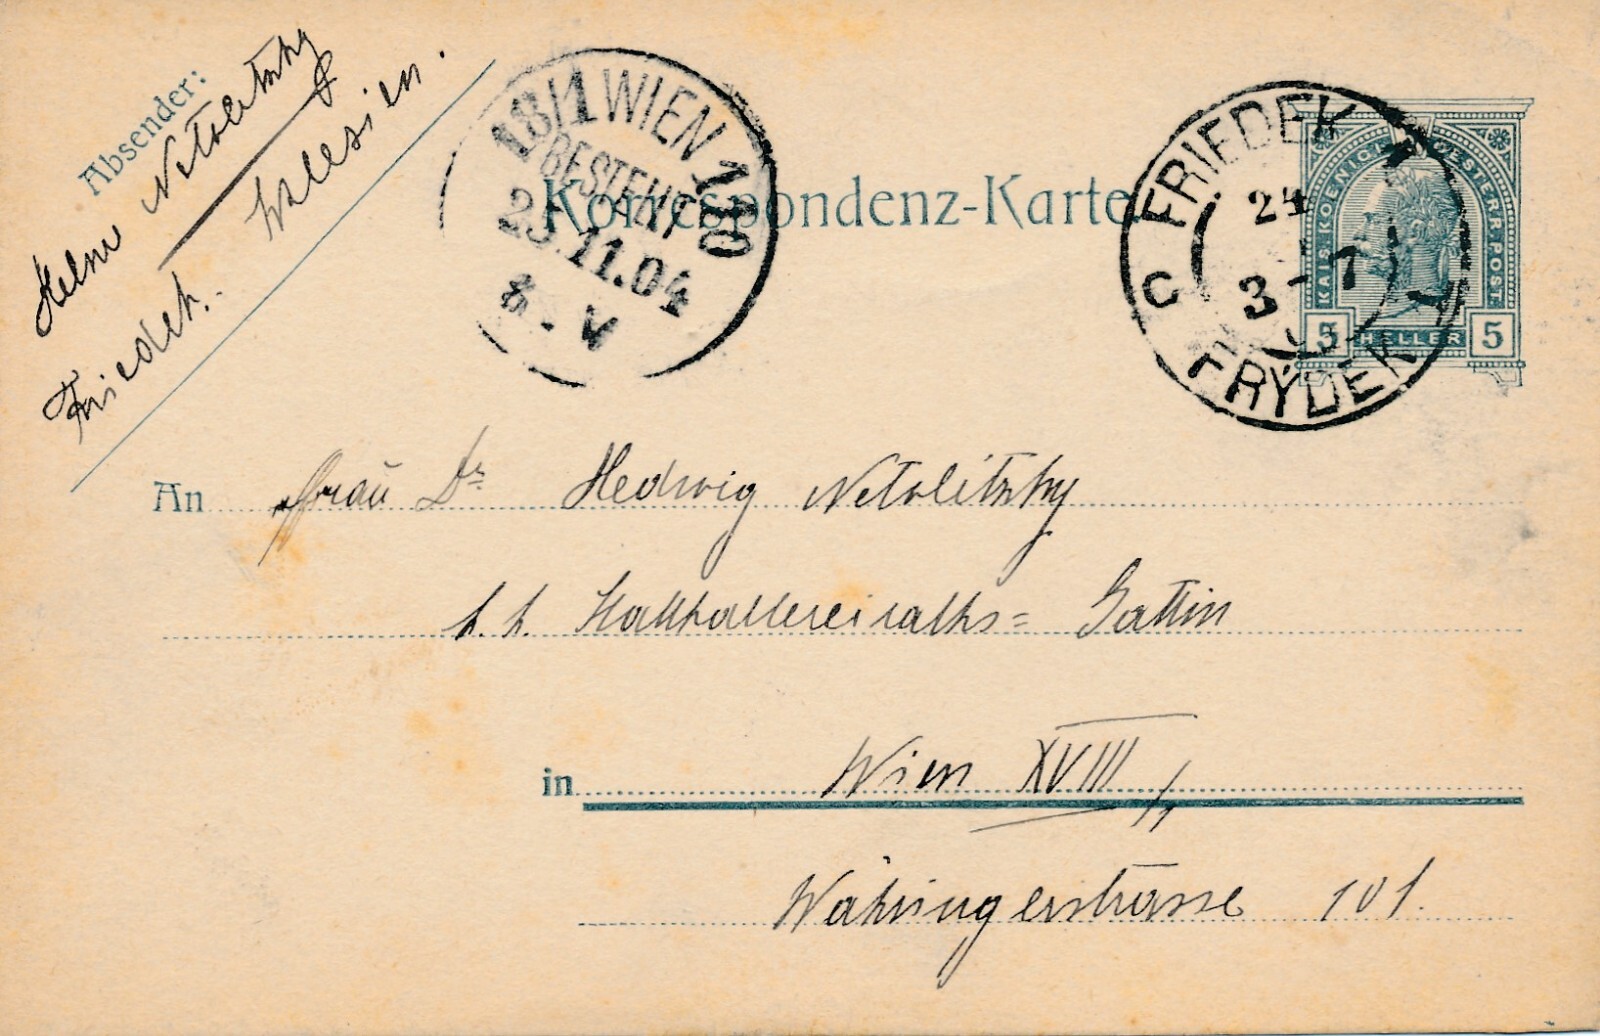 Absender:
Netolitzky
Friedek. Schlesien.
Korrespondenz-Karte.
18/1 WIEN 110
BESTELLT
25.11.04
8. V
FRIEDEK
24
3-7
C
FRÝDEK
KAIS. KOENIGL. OESTERR. POST.
5 HELLER 5
An Frau Dr. Hedwig Netolitzky
k. k. Statthaltereiraths= Gattin
in Wien XVIII/1
Währingerstrasse 101.